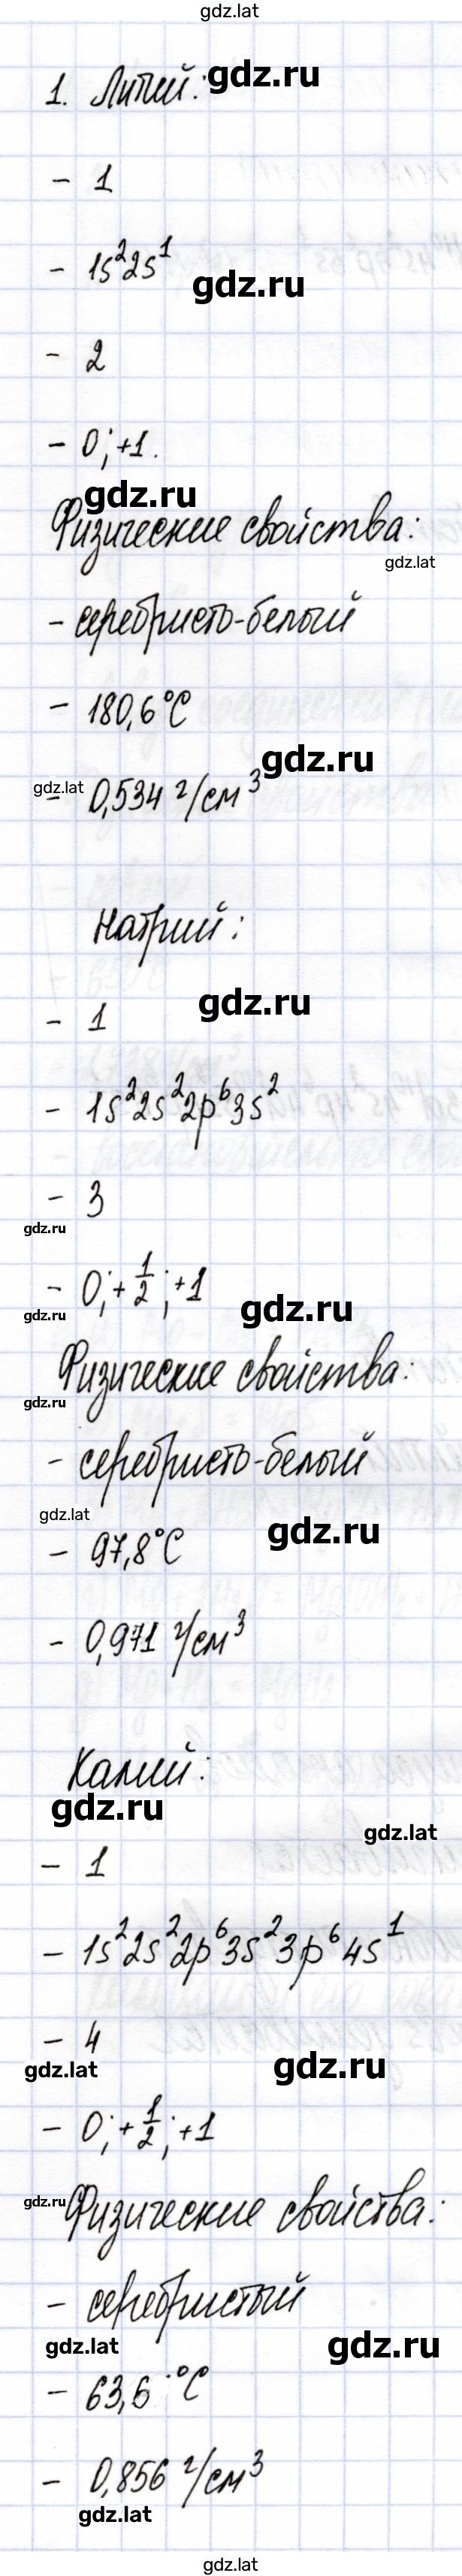 gdz.lat
1. Литий: gdz.ru
- 1
- 1s²2s¹
gdz.ru
- 2
- 0; +1.
gdz.ru
Физические свойства:
gdz.lat
- серебристо-белый
- 180,6°C
gdz.ru
gdz.lat
- 0,534 г/см³
Натрий:
gdz.ru
- 1
- 1s²2s²2p⁶3s²
- 3
gdz.ru
- 0; +1/2; +1
gdz.ru
gdz.ru
Физические свойства:
gdz.ru
- серебристо-белый
gdz.lat
gdz.ru
- 97,8°C
- 0,971 г/см³
Калий:
gdz.ru
gdz.lat
- 1
- 1s²2s²2p⁶3s²3p⁶4s¹
- 4
gdz.lat
gdz.ru
- 0; +1/2; +1
gdz.ru
Физические свойства:
- серебристый
gdz.lat
gdz.ru
- 63,6 °C
- 0,856 г/см³
gdz.lat
gdz.lat